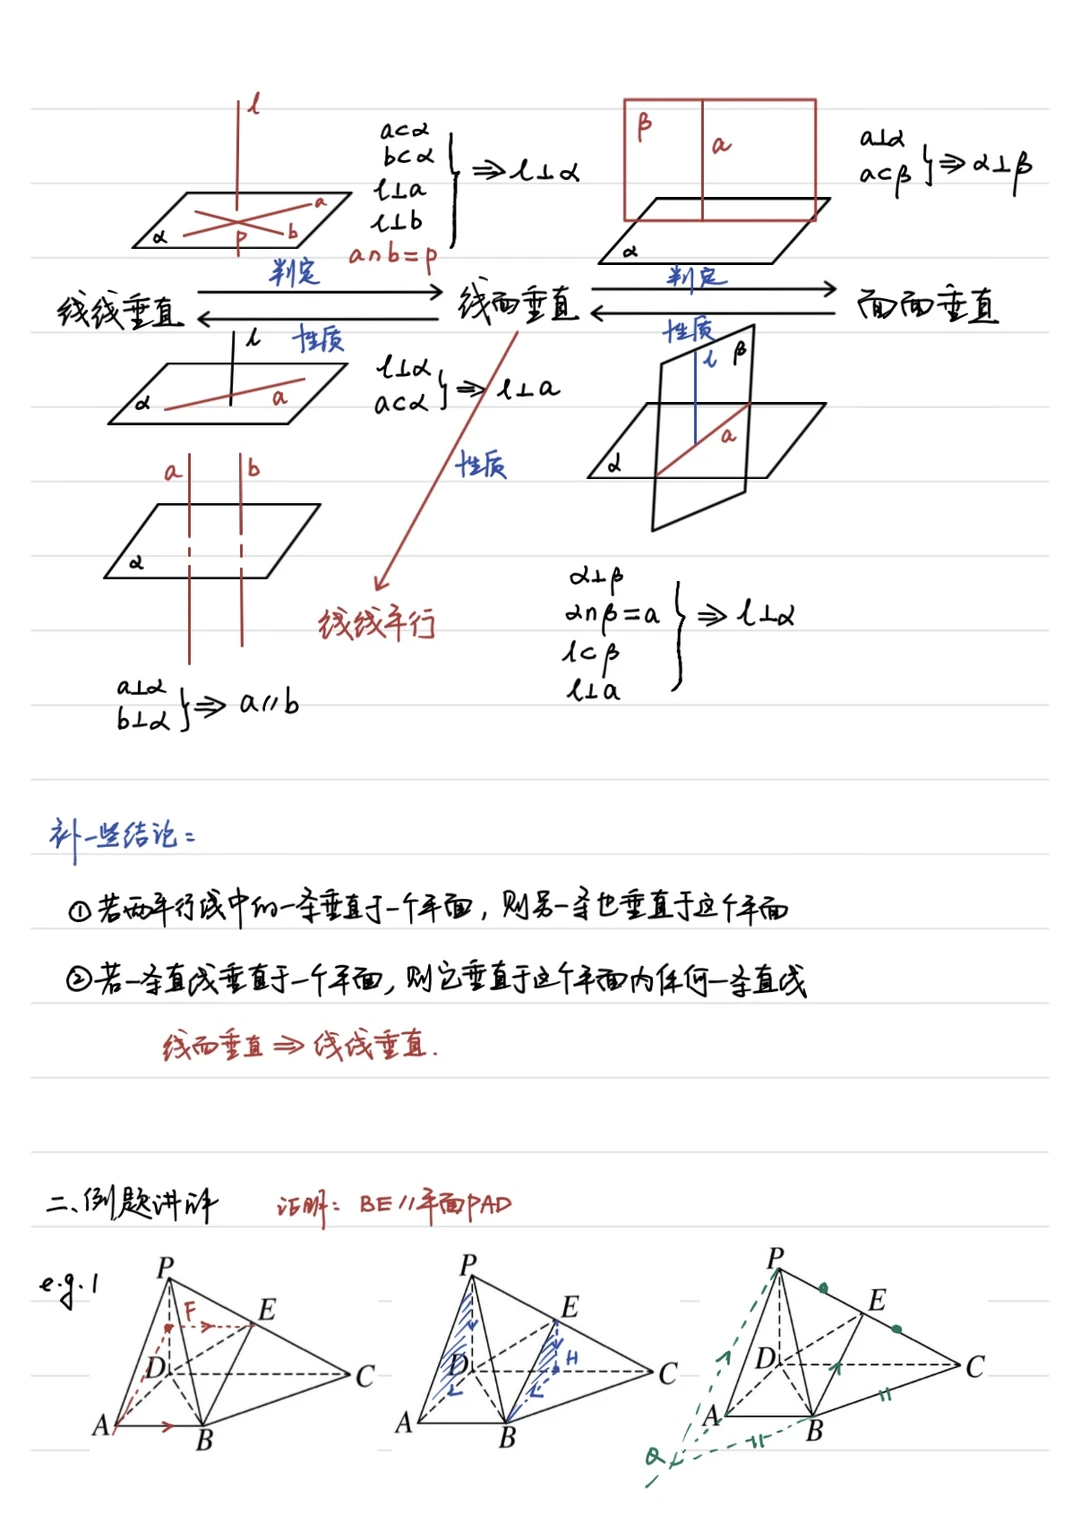 l
α a b P
a⊂α
b⊂α
l⊥a
l⊥b
a∩b=P
⇒ l⊥α
β a
α
a⊥α
a⊂β
⇒ α⊥β
判定
判定
线线垂直 线面垂直 面面垂直
性质
性质
l
α a
l⊥α
a⊂α
⇒ l⊥a
l β
a
α
性质
a b
α
线线平行
α⊥β
α∩β=a
l⊂β
l⊥a
⇒ l⊥α
a⊥α
b⊥α
⇒ a∥b
补一些结论:
①若两平行线中的一条垂直于一个平面,则另一条也垂直于这个平面
②若一条直线垂直于一个平面,则它垂直于这个平面内任何一条直线
线面垂直⇒线线垂直.
二、例题讲评 证明: BE∥平面PAD
e.g.1
P F E D C A B
P E D H C A B
P E D C A B Q